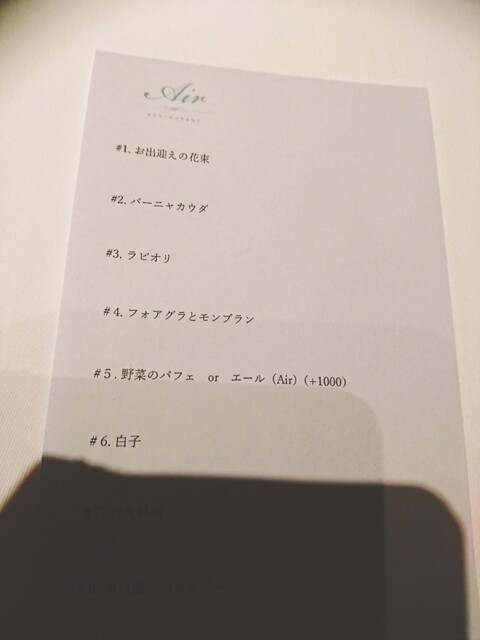 Air
RESTAURANT
#1. お出迎えの花束
#2. バーニャカウダ
#3. ラビオリ
#4. フォアグラとモンブラン
#5. 野菜のパフェ or エール (Air) (+1000)
#6. 白子
#7.
#8.